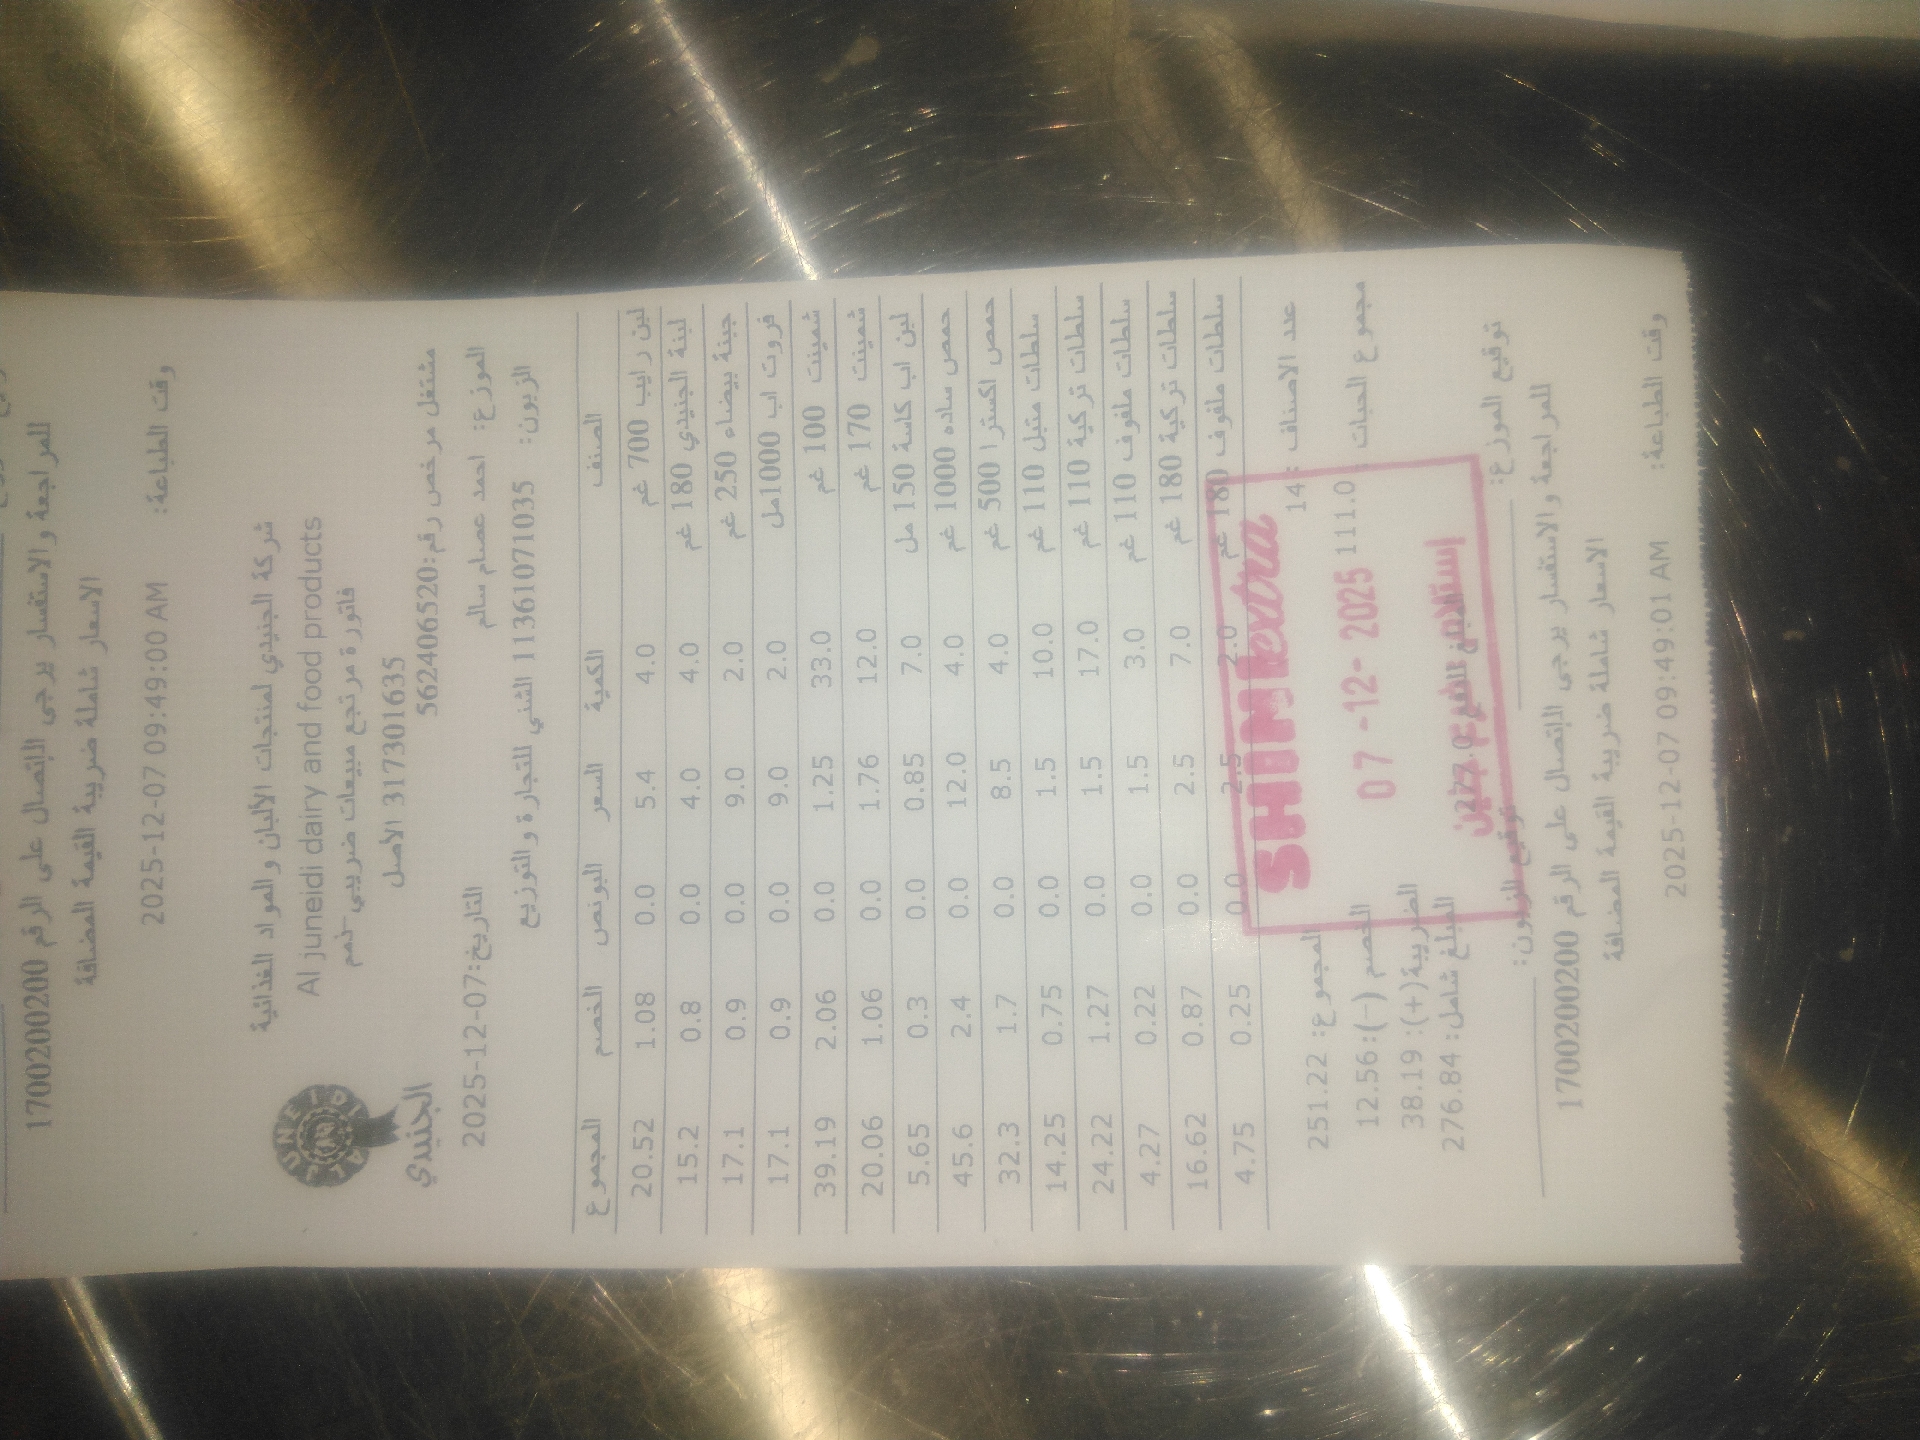 للمراجعة والاستفسار يرجى الاتصال على الرقم 1700200200
الاسعار شاملة ضريبة القيمة المضافة
وقت الطباعة: 2025-12-07 09:49:00 AM
شركة الجنيدي لمنتجات الألبان والمواد الغذائية
Al juneidi dairy and food products
فاتورة مرتجع مبيعات ضريبي-ذمم
317301635 الاصل
مشتغل مرخص رقم:562406520
AL JUNEIDI
الجنيدي
الموزع: احمد عصام سالم التاريخ:2025-12-07
الزبون: 1136107071035 الشني للتجارة والتوزيع
الصنف الكمية السعر البونص الخصم المجموع
لبن رايب 700 غم 4.0 5.4 0.0 1.08 20.52
لبنة الجنيدي 180 غم 4.0 4.0 0.0 0.8 15.2
جبنة بيضاء 250 غم 2.0 9.0 0.0 0.9 17.1
فروت اب 1000مل 2.0 9.0 0.0 0.9 17.1
شمينت 100 غم 33.0 1.25 0.0 2.06 39.19
شمينت 170 غم 12.0 1.76 0.0 1.06 20.06
لبن اب كاسة 150 مل 7.0 0.85 0.0 0.3 5.65
حمص ساده 1000 غم 4.0 12.0 0.0 2.4 45.6
حمص اكسترا 500 غم 4.0 8.5 0.0 1.7 32.3
سلطات متبل 110 غم 10.0 1.5 0.0 0.75 14.25
سلطات تركية 110 غم 17.0 1.5 0.0 1.27 24.22
سلطات ملفوف 110 غم 3.0 1.5 0.0 0.22 4.27
سلطات تركية 180 غم 7.0 2.5 0.0 0.87 16.62
سلطات ملفوف 180 غم 2.0 2.5 0.0 0.25 4.75
عدد الاصناف : 14 المجموع: 251.22
مجموع الحبات : 111.0 الخصم (-): 12.56
الضريبة(+): 38.19
المبلغ شامل: 276.84
277.0
SHINI extra
07 -12- 2025
توقيع الموزع: توقيع الزبون:
للمراجعة والاستفسار يرجى الاتصال على الرقم 1700200200
الاسعار شاملة ضريبة القيمة المضافة
وقت الطباعة: 2025-12-07 09:49:01 AM